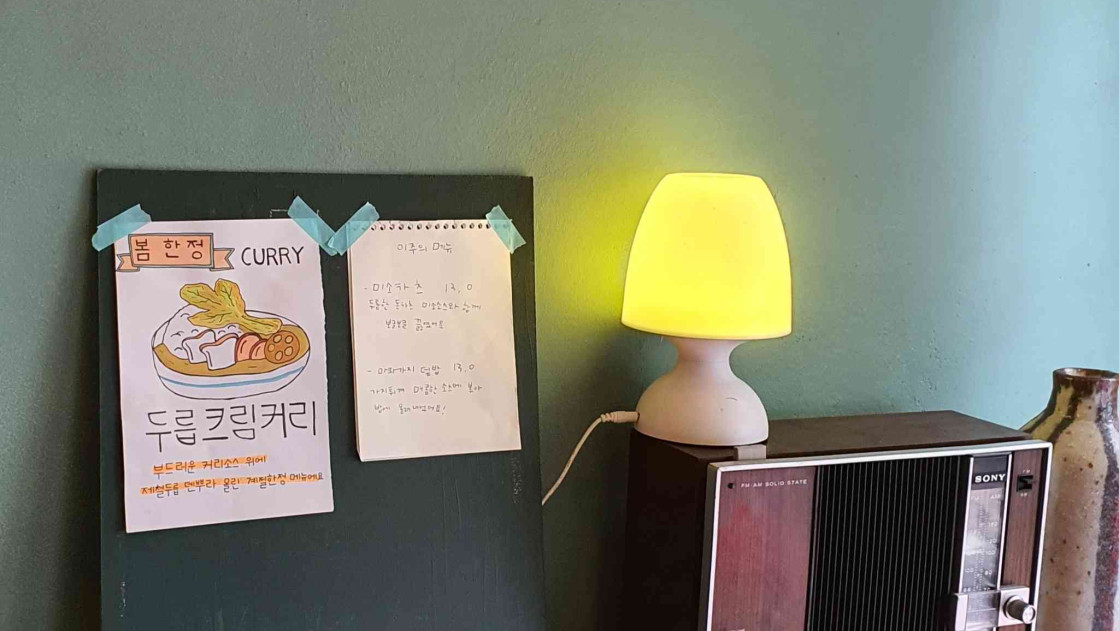 봄 한정
CURRY
두릅크림커리
부드러운 커리소스 위에
제철두릅 덴뿌라 올린 계절한정 메뉴에요
이주의 메뉴
- 미소카츠 13,0
두툼한 돈카츠 미소소스와 함께
보글보글 끓였어요
- 마파가지 덮밥 13.0
가지튀겨 매콤한 소스에 볶아
밥에 올려냈어요!
FM/AM SOLID STATE
SONY